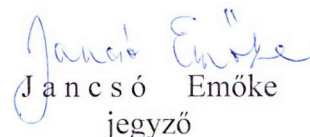 Jancsó Emőke
Jancsó Emőke
jegyző